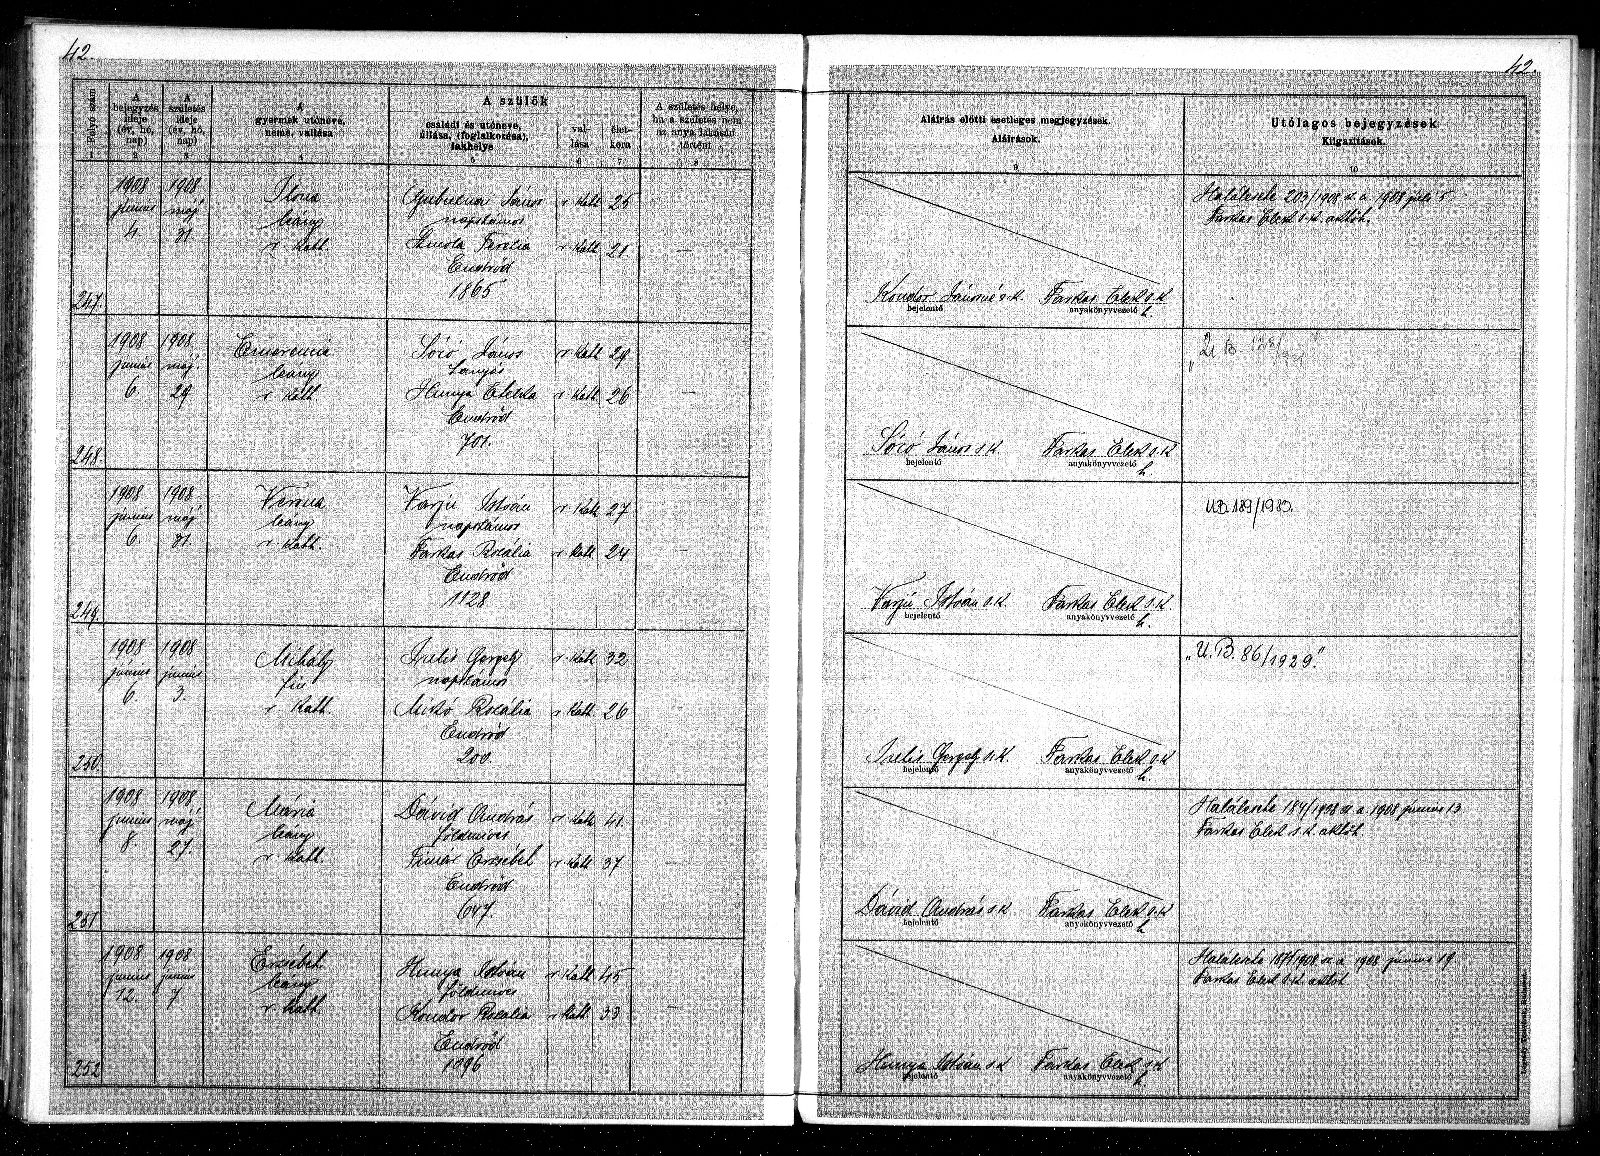 42.
42.
Folyó szám
A bejegyzés ideje (év, hó, nap)
A születés ideje (év, hó, nap)
A gyermek utóneve, neme, vallása
A szülők
családi és utóneve, állása, (foglalkozása), lakhelye
vallása
életkora
A születés helye, ha a születés nem az anya lakásán történt
Aláírás előtti esetleges megjegyzések.
Aláírások.
Utólagos bejegyzések
Kiigazítások.
1 2 3 4 5 6 7 8 9 10
247.
1908 június 4.
1908 máj. 31
Ilona
leány
r. kath.
János
napszámos
r. kath. 25
Terézia
r. kath. 21.
Endrőd
1865
—
Kondor Jánosné s. k.
bejelentő
Farkas Elek s. k.
anyakönyvvezető
h.
Haláleste 203/1908 sz. a. 1908 júli 5.
Farkas Elek s. k. aklöh.
248.
1908 június 6.
1908 máj. 29
Emerencia
leány
r. kath.
Sóró János
r. kath. 28
Hunya Etelka
r. kath. 26
Endrőd
701.
—
Sóró János s. k.
bejelentő
Farkas Elek s. k.
anyakönyvvezető
h.
249.
1908 június 6.
1908 máj. 31
Verona
leány
r. kath.
Varjú István
napszámos
r. kath. 27
Farkas Rozália
r. kath. 24
Endrőd
1128
—
Varjú István s. k.
bejelentő
Farkas Elek s. k.
anyakönyvvezető
h.
U.B. 189/1983.
250.
1908 június 6.
1908 június 3.
Mihály
fiu
r. kath.
Iselis Gergely
napszámos
r. kath. 32
Rozália
r. kath. 26
Endrőd
200.
Iselis Gergely s. k.
bejelentő
Farkas Elek s. k.
anyakönyvvezető
h.
„U. B. 86/1929."
251.
1908 június 8.
1908 máj. 27.
Mária
leány
r. kath.
Dávid András
földmives
r. kath. 41.
Timár Erzsébet
r. kath. 37
Endrőd
647.
—
Dávid András s. k.
bejelentő
Farkas Elek s. k.
anyakönyvvezető
h.
Haláleste 184/1908 sz. a. 1908 június 13.
Farkas Elek s. k. aklöh.
252
1908 június 12.
1908 június 7
Erzsébet
leány
r. kath.
Hunya István
földmives
r. kath. 45
Kondor Rozália
r. kath. 33
Endrőd
1096
—
Hunya István s. k.
bejelentő
Farkas Elek s. k.
anyakönyvvezető
h.
Haláleste 187/1908 sz. a. 1908 június 19.
Farkas Elek s. k. aklöh.